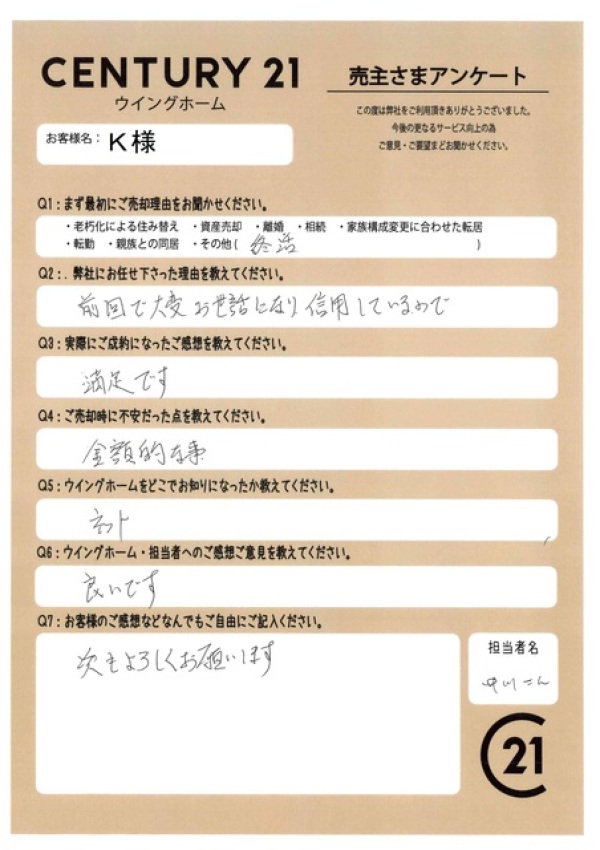 CENTURY 21
ウイングホーム
売主さまアンケート
この度は弊社をご利用頂きありがとうございました。
今後の更なるサービス向上の為
ご意見・ご要望までお聞かせください。
お客様名： K様
Q1：まず最初にご売却理由をお聞かせください。
・老朽化による住み替え ・資産売却 ・離婚 ・相続 ・家族構成変更に合わせた転居
・転勤 ・親族との同居 ・その他( 終活 )
Q2：. 弊社にお任せ下さった理由を教えてください。
前回で大変お世話になり信用しているので
Q3：実際にご成約になったご感想を教えてください。
満足です
Q4：ご売却時に不安だった点を教えてください。
金額的な事
Q5：ウイングホームをどこでお知りになったか教えてください。
ネット
Q6：ウイングホーム・担当者へのご感想ご意見を教えてください。
良いです
Q7：お客様のご感想などなんでもご自由にご記入ください。
次もよろしくお願いします
担当者名
中川さん
C21